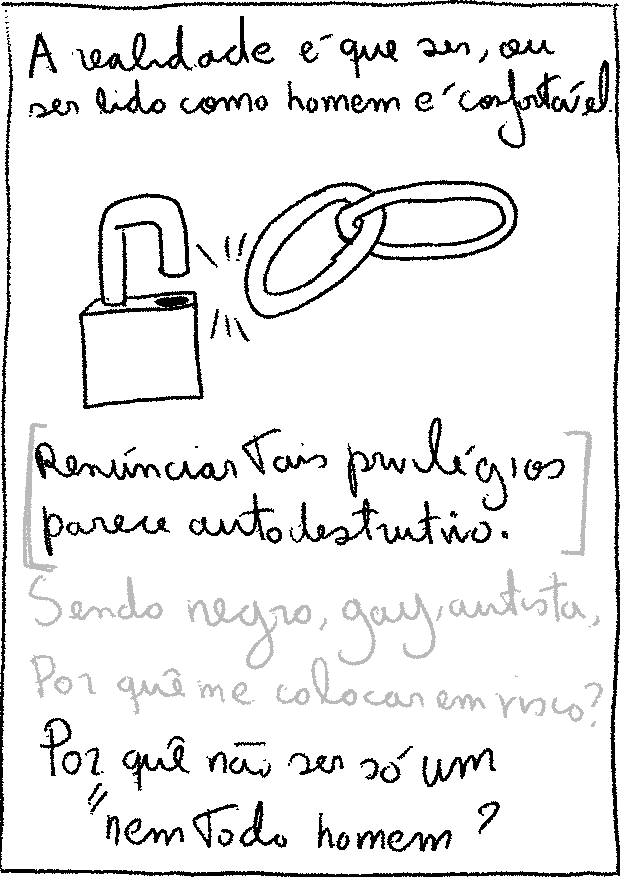 A realidade é que ser, ou
ser lido como homem é confortável.
Renúnciar tais privilégios
parece autodestrutivo.
Sendo negro, gay, autista,
Por quê me colocar em risco?
Por quê não ser só um
"nem todo homem?